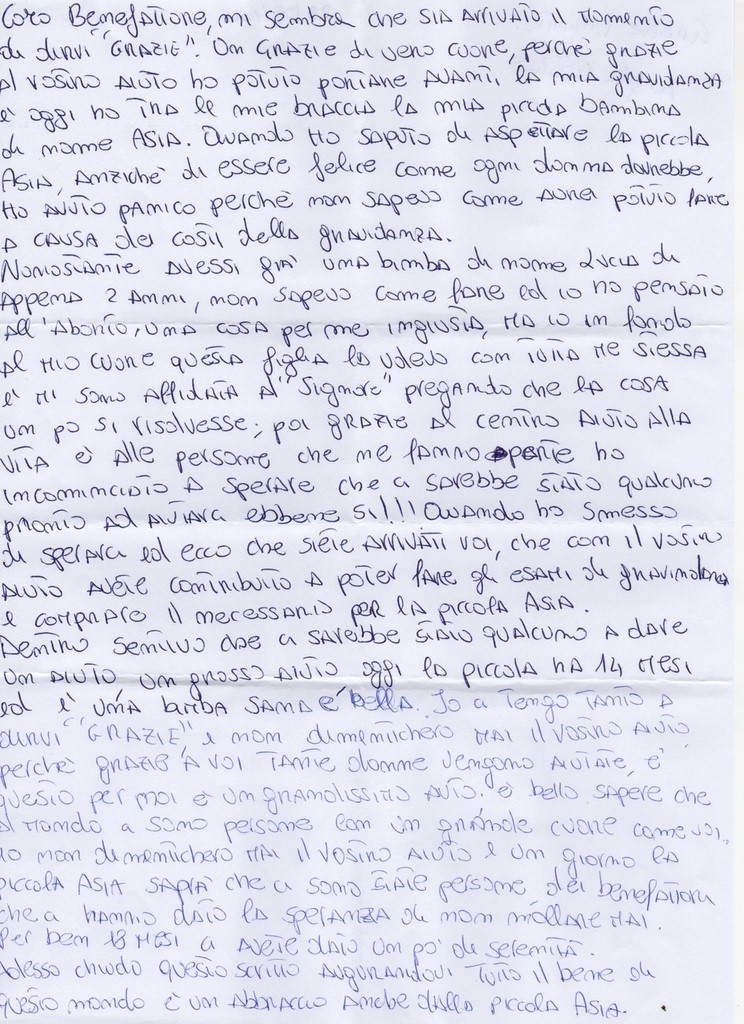 Caro Benefattore, mi sembra che sia arrivato il momento
di dirvi "GRAZIE". Un GRAZIE di vero cuore, perchè grazie
al vostro aiuto ho potuto portare avanti la mia gravidanza
e oggi ho tra le mie braccia la mia piccola bambina
di nome ASIA. Quando ho saputo di aspettare la piccola
ASIA, anzichè di essere felice come ogni donna dovrebbe,
ho avuto panico perchè non sapevo come avrei potuto fare
a causa dei costi della gravidanza.
Nonostante avessi già una bimba di nome Lucia di
appena 2 anni, non sapevo come fare ed io ho pensato
all'Aborto, una cosa per me ingiusta, ma io in fondo
al mio cuore questa figlia la volevo con tutta me stessa
e mi sono affidata a "Signore" pregando che la cosa
un po si risolvesse; poi grazie al centro Aiuto alla
vita e alle persone che ne fanno parte ho
incominciato a sperare che ci sarebbe stato qualcuno
pronto ad aiutarci ebbene si!!! Quando ho smesso
di sperarci ed ecco che siete arrivati voi, che con il vostro
aiuto avete contribuito a poter fare gli esami di gravidanza
e comprare il necessario per la piccola Asia.
Dentro sentivo che ci sarebbe stato qualcuno a dare
un aiuto un grosso aiuto oggi la piccola ha 14 mesi
ed è una bimba sana e bella. Io ci tengo tanto a
dirvi "GRAZIE", e non dimenticherò mai il vostro aiuto
perchè grazie a voi tante donne vengono aiutate, e
questo per noi è un grandissimo aiuto. è bello sapere che
al mondo ci sono persone con un grande cuore come voi.
io non dimenticherò mai il vostro aiuto e un giorno la
piccola ASIA saprà che ci sono state persone dei benefattori
che ci hanno dato la speranza di non mollare mai.
Per ben 18 mesi ci avete dato un po' di serenità.
Adesso chiudo questo scritto augurandovi tutto il bene di
questo mondo e un abbraccio anche dalla piccola Asia.